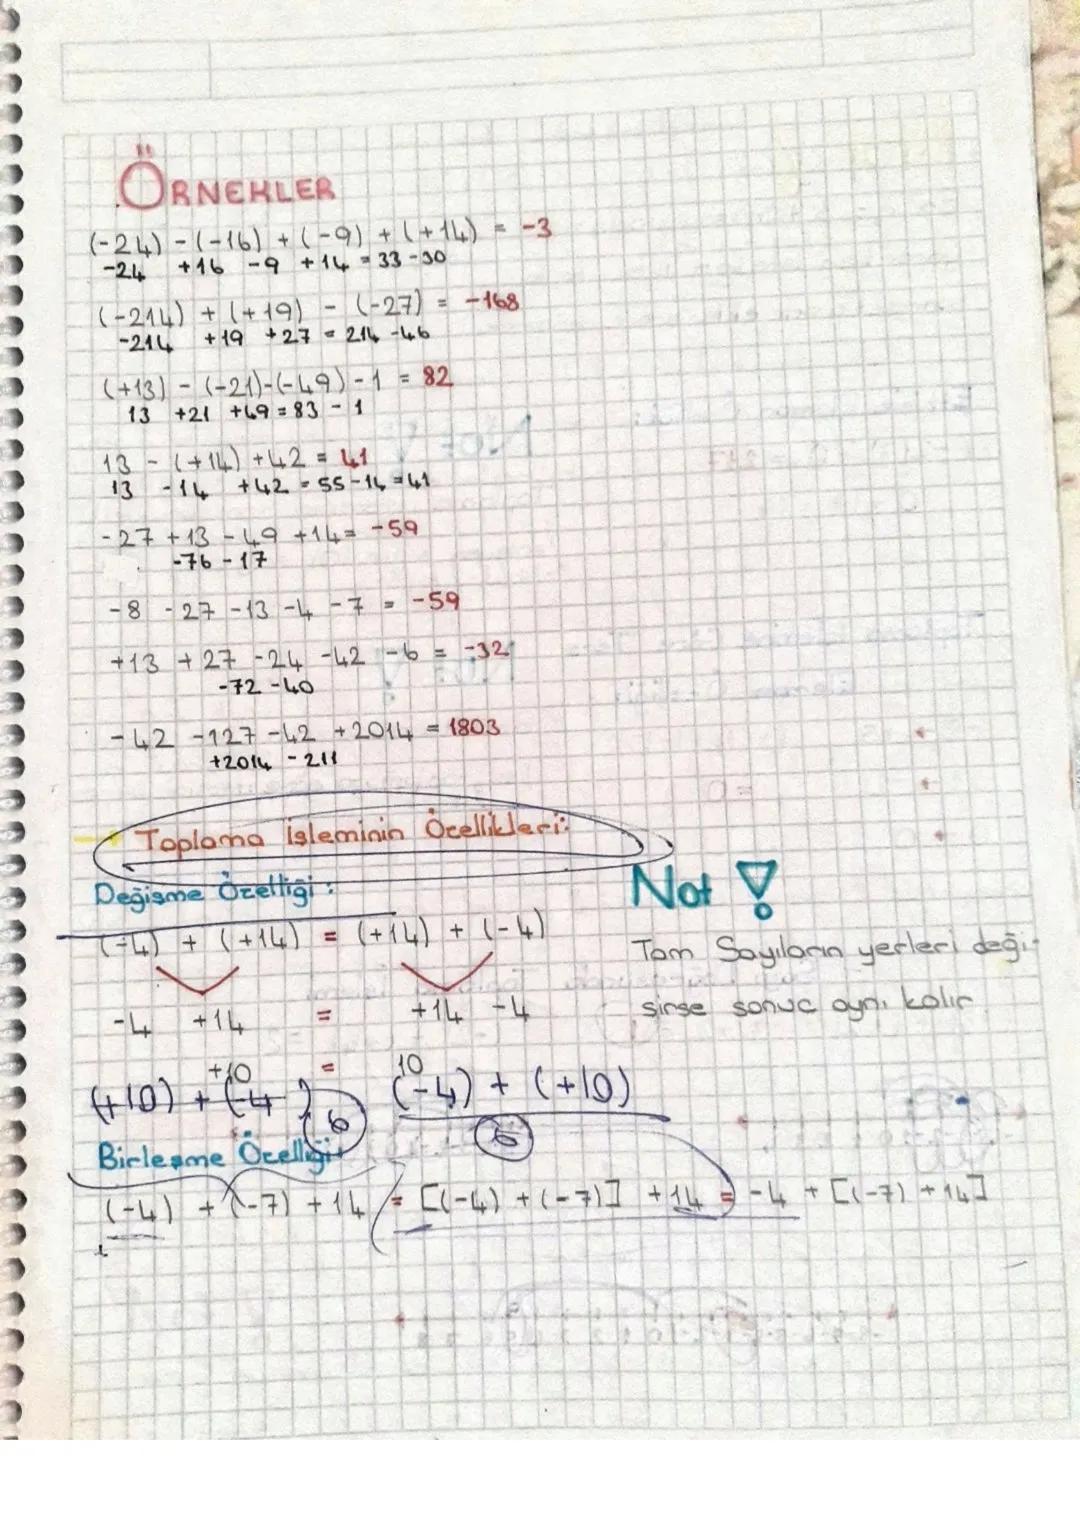 ÖRNEKLER
(-24) - (-16) + (-9) + (+14) = -3
-24 +16 -9 +14 = 33 -30
(-214) + (+19) - (-27) = -168
-214 +19 +27 = 214 -46
(+13) - (-21)-(-49) - 1 = 82
13 +21 +49 = 83 - 1
13 - (+14) +42 = 41
13 -14 +42 = 55-14 = 41
-27 +13 -49 +14 = -59
-76 -17
-8 -27 -13 -4 -7 = -59
+13 +27 -24 -42 -6 = -32
-72 -40
-42 -127 -42 +2014 = 1803
+2014 - 211
Toplama İşleminin Özellikleri:
Değişme Özelliği :
(-4) + (+14) = (+14) + (-4)
-4 +14 = +14 -4
+10 = 10
(+10) + (-4) 6 (-4) + (+10)
6
Not !
Tam Sayıların yerleri deği-
şirse sonuç aynı kalır
Birleşme Özelliği:
(-4) + (-7) + 14 = [(-4) + (-7)] + 14 = -4 + [(-7) + 14]